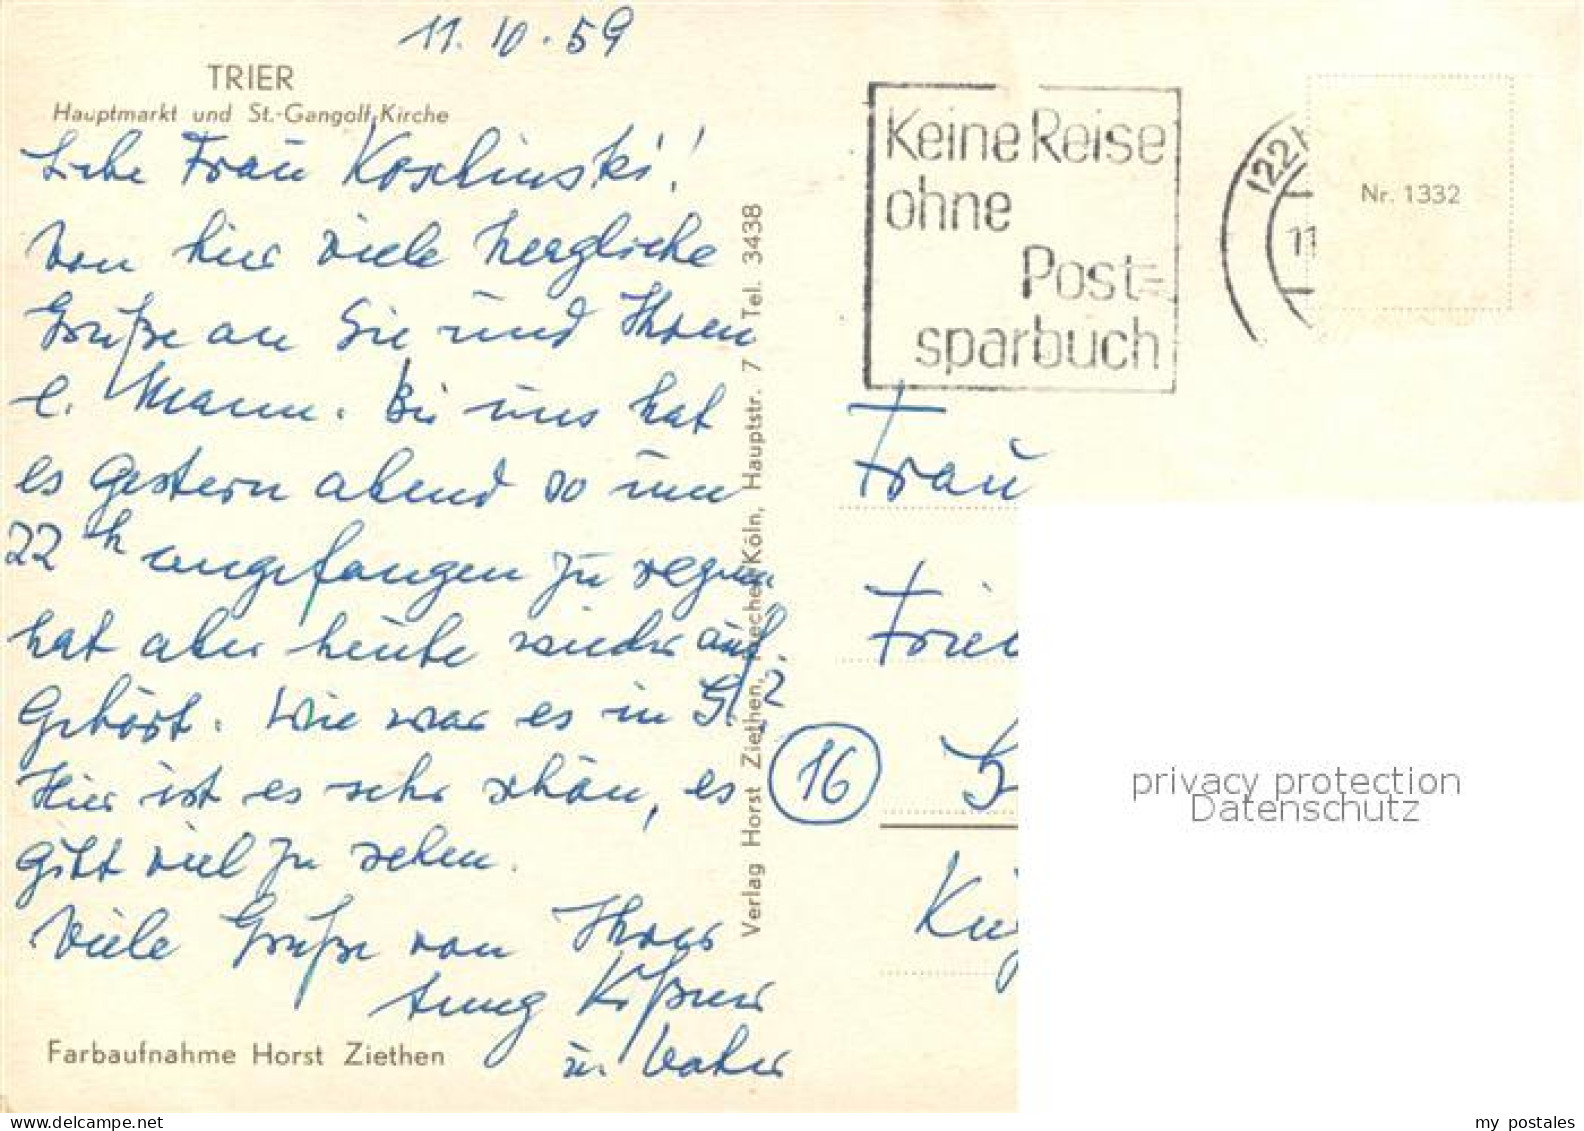 11.10.59
TRIER
Hauptmarkt und St.-Gangolf-Kirche
Liebe Frau Koschinski!
Von hier viele herzliche
Grüße an Sie und Ihren
l. Mann. Bei uns hat
es gestern abend so um
22 h angefangen zu regnen
hat aber heute wieder auf-
Gehört. Wie war es in G.?
Hier ist es sehr schön, es
gibt viel zu sehen.
Viele Grüße von Ihrer
u. Vater
Farbaufnahme Horst Ziethen
Verlag Horst Ziethen, Frechen/Köln, Hauptstr. 7 Tel. 3438
Keine Reise
ohne
Post-
sparbuch
(22
11
Nr. 1332
Frau
Frie
16
privacy protection
Datenschutz
delcampe.net
my postales